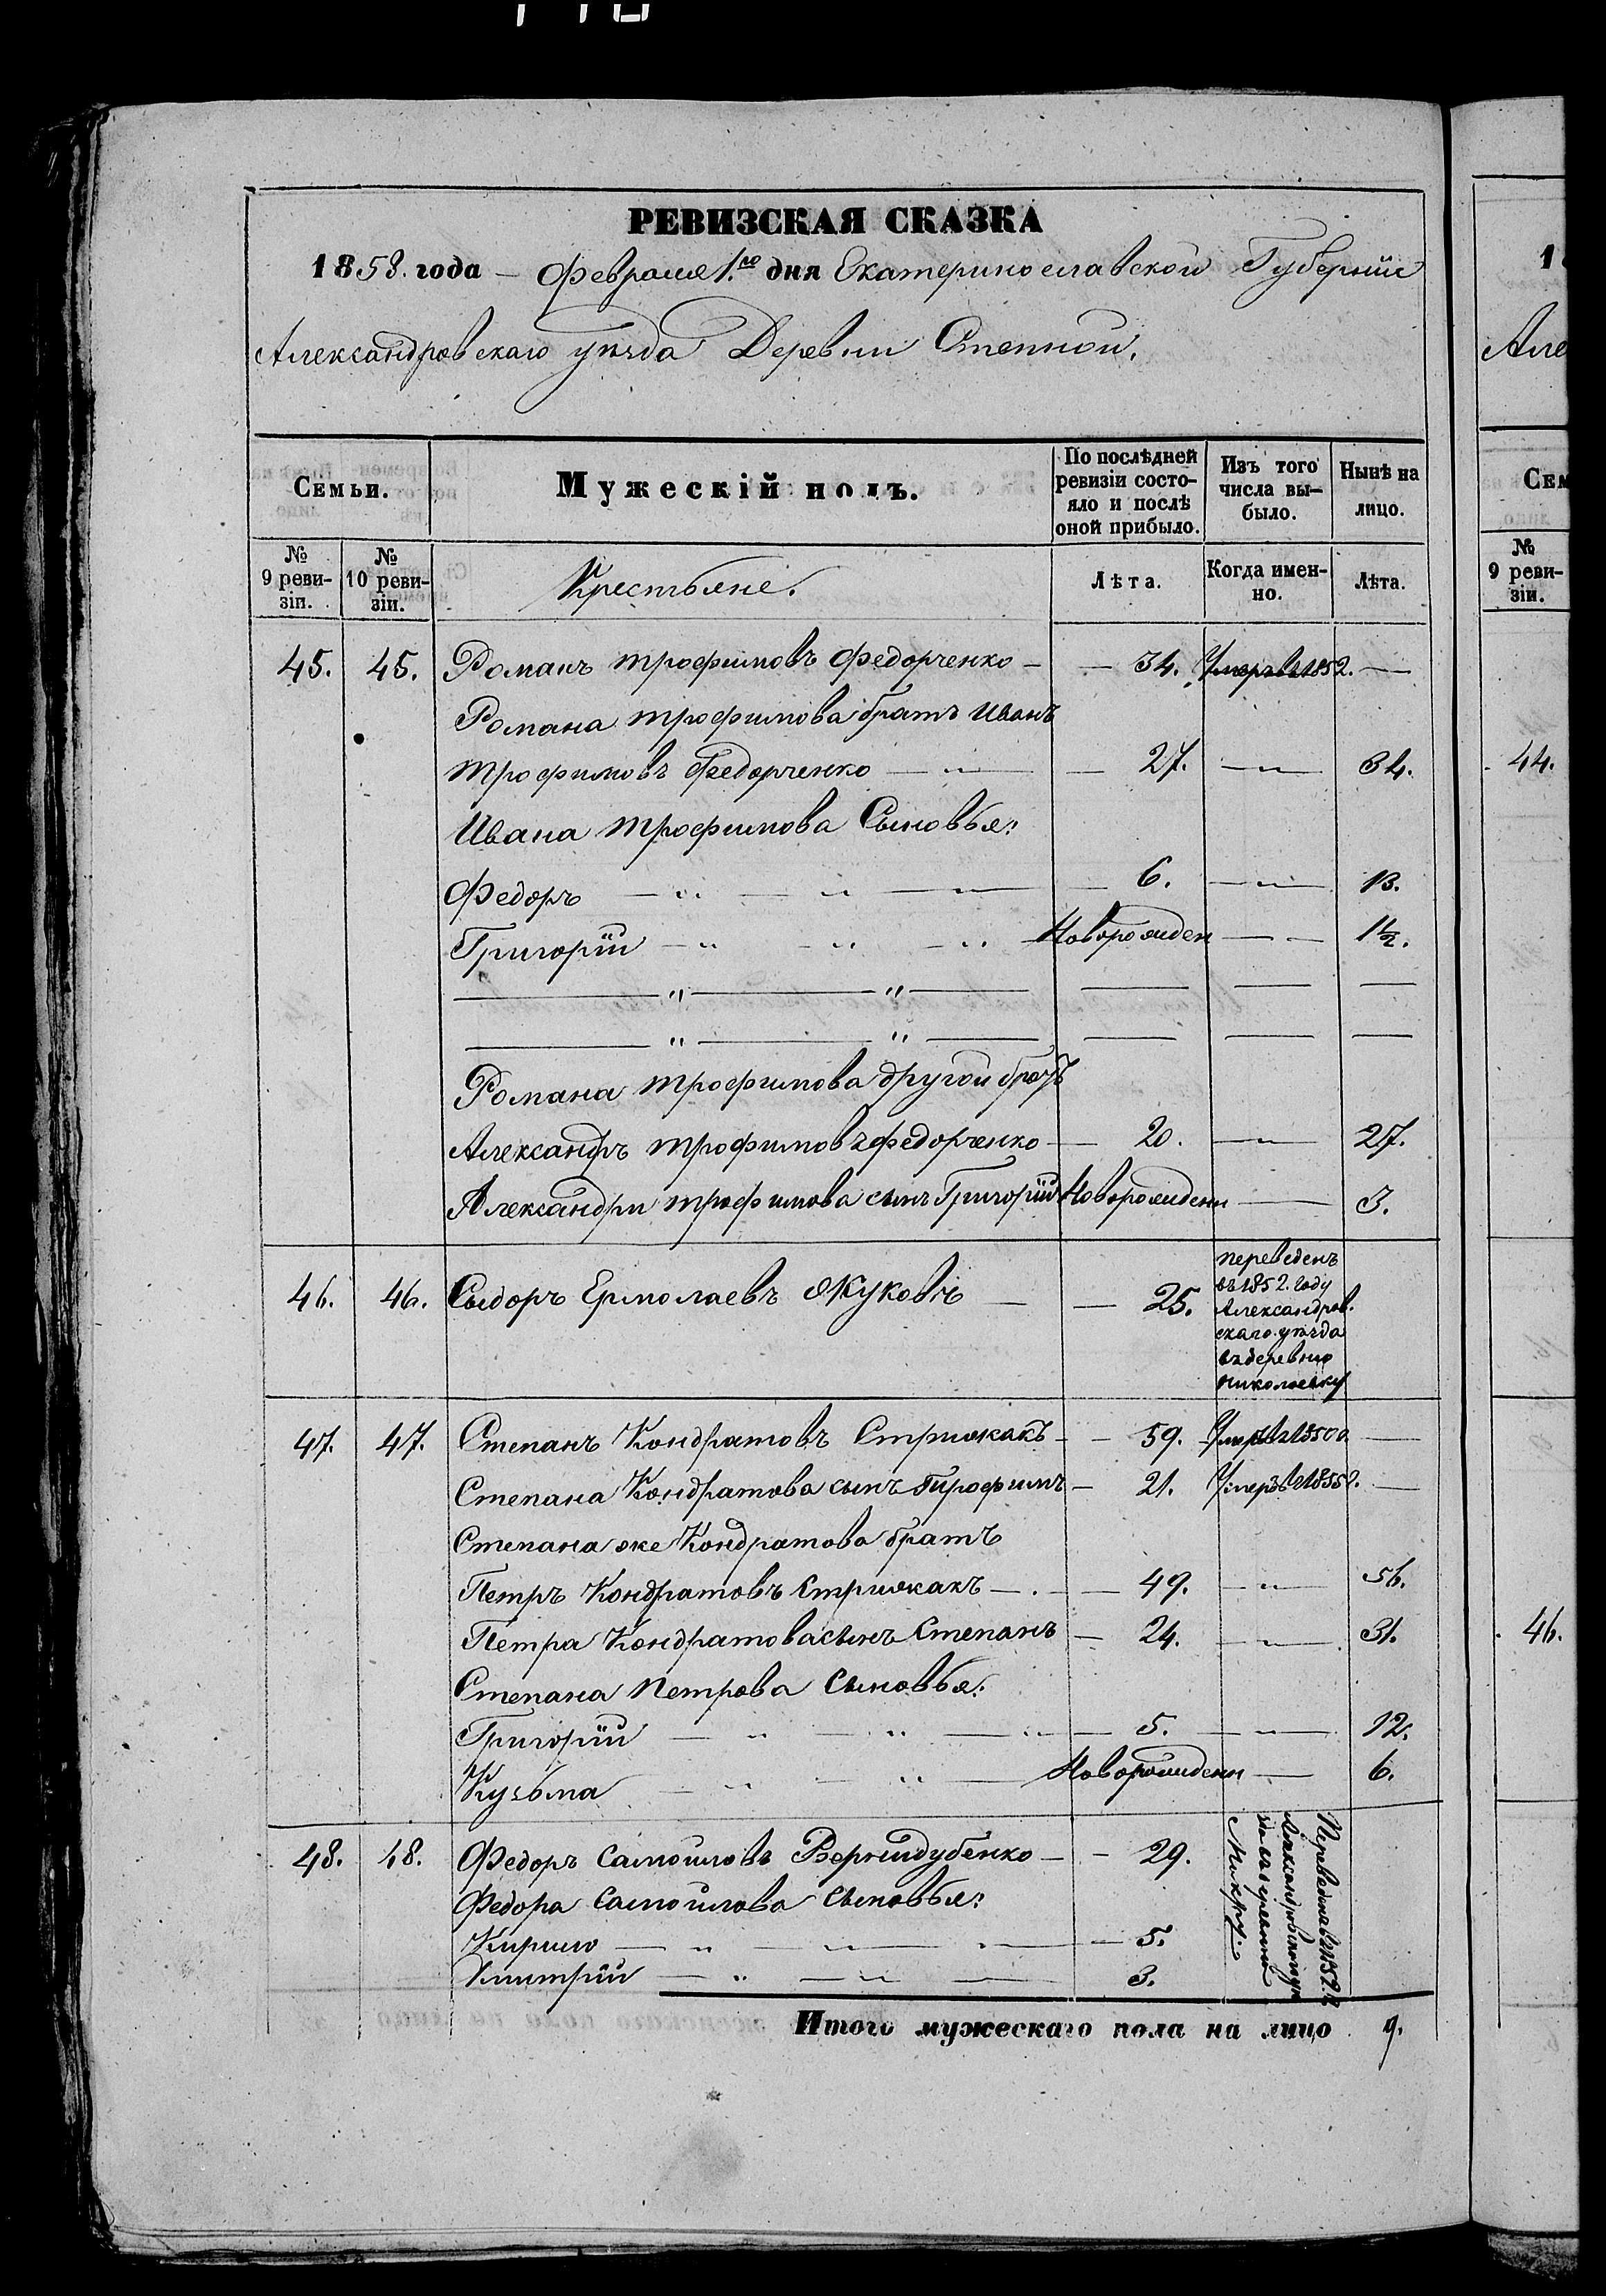 РЕВИЗСКАЯ СКАЗКА
1858. года – Февраля 1.го дня Екатеринославской Губерніи
Александровскаго уѣзда Деревни Степной.
Семьи.
Мужескій полъ.
По послѣдней ревизіи состояло и послѣ оной прибыло.
Изъ того числа выбыло.
Нынѣ на лицо.
№ 9 ревизіи.
№ 10 ревизіи.
Крестьяне.
Лѣта.
Когда именно.
Лѣта.
45. 45. Романъ трофимовъ Федорченко — 34. Умеръ въ 1852. —
Романа трофимова братъ Иванъ
трофимовъ Федорченко — 27. — 34.
Ивана трофимова Сыновья:
Федоръ — 6. — 13.
Григорій — Новорожден — 1½.
— " — " — — — —
— " — " — — — —
Романа трофимова другой братъ
Александръ трофимовъ Федорченко — 20. — 27.
Александра трофимова сынъ Григорій Новорожденн — 3.
46. 46. Сыдоръ Ермолаевъ Жуковъ — 25.
переведенъ
въ 1852. году
Александров.
скаго уѣзда
въ деревню
николаевку
47. 47. Степанъ Кондратовъ Стрижакъ — 59. Умеръ въ 1850 г. —
Степана Кондратова сынъ Трофимъ — 21. Умеръ въ 1855 г. —
Степана же Кондратова братъ
Петръ Кондратовъ Стрижакъ — 49. — 56.
Петра Кондратова сынъ Степанъ — 24. — 31.
Степана петрова Сыновья:
Григорій — 5. — 12.
Кузьма — Новорожденн — 6.
48. 48. Федоръ Самойловъ Вернидубенко — 29.
Федора Самойлова Сыновья:
Кирило — 5.
Дмитрій — 3.
Переведены въ 1852. г.
Александровскаго уѣз
да въ деревню
Итого мужескаго пола на лицо 9.
1
Але
Сем
№
9 реви-
зіи.
44.
46.